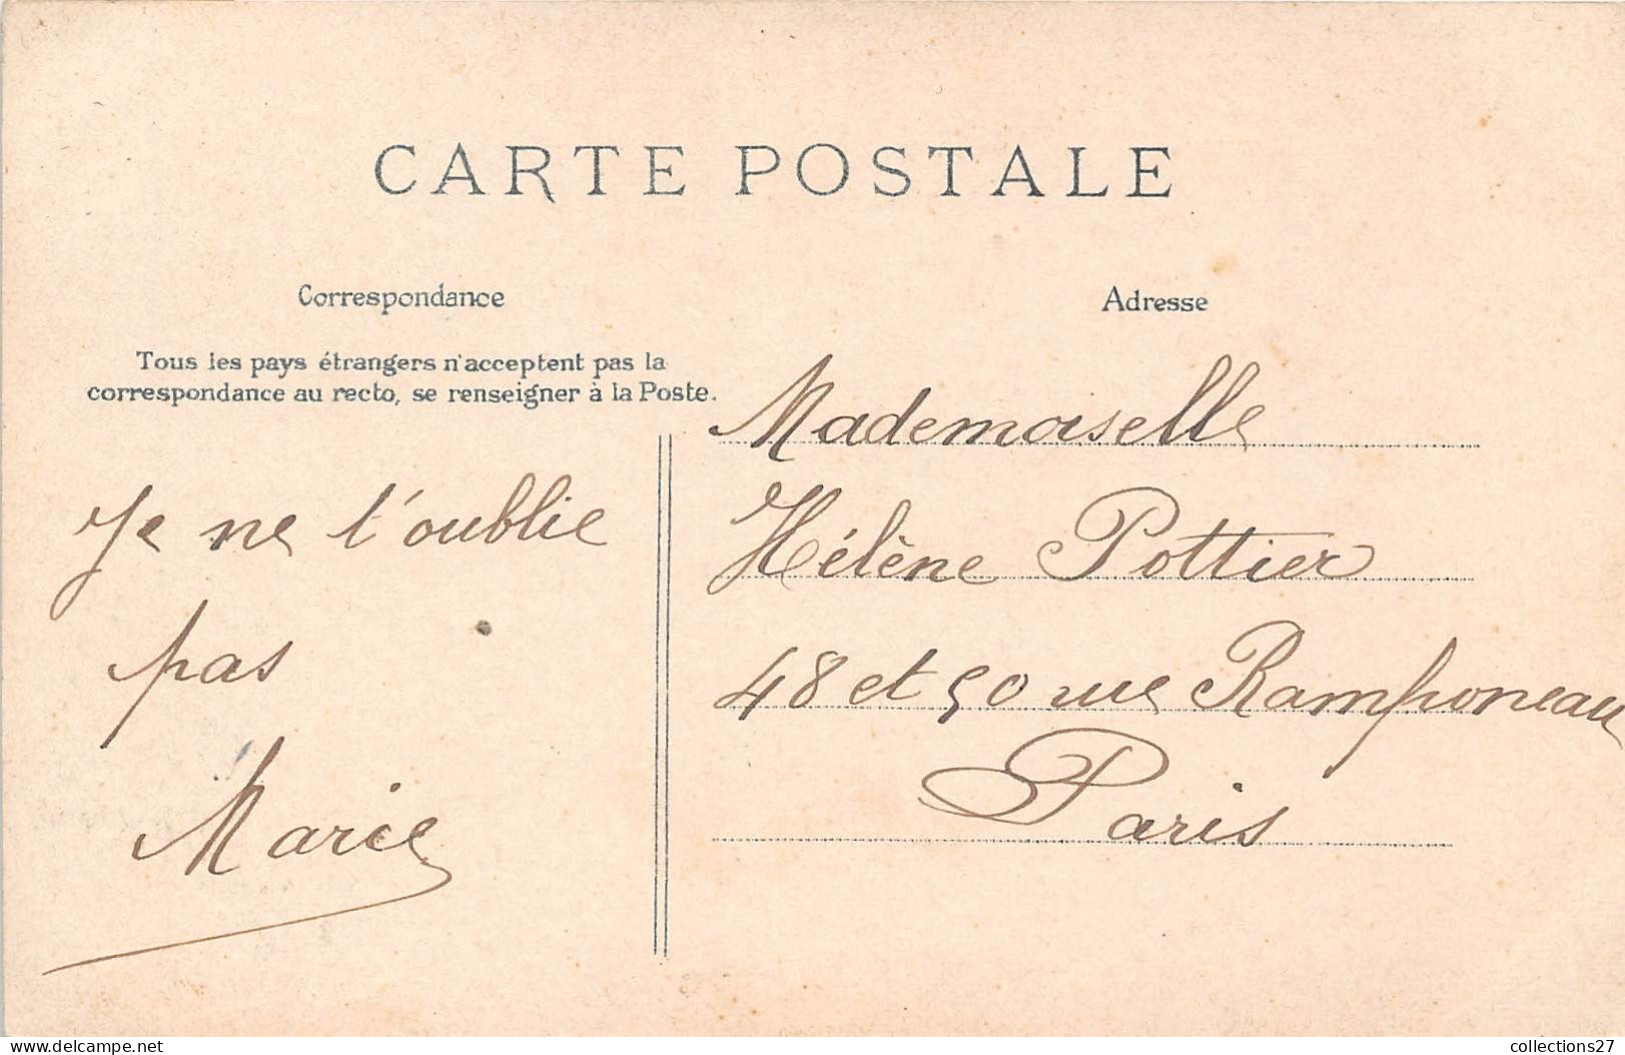 CARTE POSTALE
Correspondance
Tous les pays étrangers n'acceptent pas la
correspondance au recto, se renseigner à la Poste.
Je ne t'oublie
pas
Marie
Adresse
Mademoiselle
Hélène Pottier
48 et 50 rue Ramponeau
Paris
delcampe.net
collections27